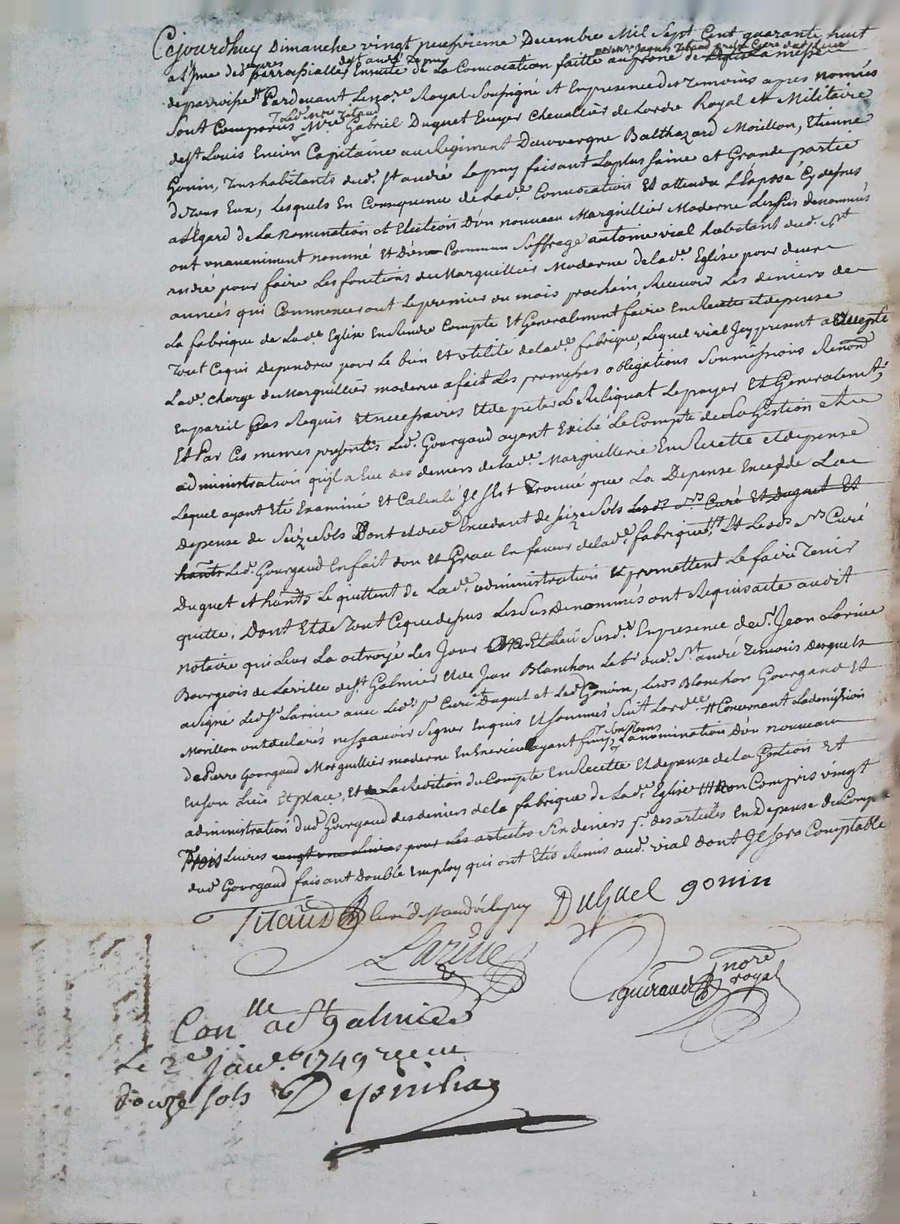 Cejourdhuy Dimanche vingt neufvieme Decembre Mil Sept Cent quarante huit
a l'jssue des vepres parrossialles de st andré le puy Ensuite de la Convocation faitte au prone de la messe
de parroisse Pardevant Le nore. Royal Soussigné et En presence des Temoins apres nommés
Sont Comparus Mre Gabriel Duguet Ecuyer Chevallier de Lordre Royal et Militaire
de st Louis Encien Capitaine au Regiment Dauvergne Balthazard Moillon, Etienne
Gonin, Tous habitants dud. st andré Le puy faisant La plus Saine et Grande partie
de tous Eux, Lesquels En Consequence de Lade. Convocation Et attendu L'Exposé Cy dessus
a L'Egard de La nomination et Election D'un nouveau Marguillier Moderne Les sus denommés
ont unanimement nommé Et D'un Commun Suffrage antoine vial habitant dud. st
andré pour faire Les fonctions de Marguillier Moderne de lade. Eglise pour deux
années qui Commenceront Le premier du mois prochain, Recevoir Les deniers de
La fabrique de Lade Eglise En Rendre Compte Et Generalement faire En Recette et depense
Tout Ce qui dependra pour Le bien Et utilité de lade. fabrique, Lequel vial Jcy present a accepté
Lade. Charge de Marguillier moderne a fait Les promesses obligations Soummissions Renond
En pareil Cas Requis Et necessaires Et de preter Le Reliquat Le payer Et Generalement,
Et Par Ces memes presentes Led. Gourgaud ayant Exibé Le Compte de La Gestion et
administration qu'il a Eue des deniers de lade. Marguillerie En Recette et depense
Lequel ayant Eté Examiné Et Calculé Jl s'est Trouvé que La Depense Excedde La
depense de Seize Sols Dont et dud. Excedant de Seize Sols Lesd. srs Curé Et Duguet Et
hants Led. Gourgaud En fait don et Grace En faveur de lade. fabrique, Et Lesd. srs Curé
Duguet et hants Le quittent de Lade. administration Et promettent Le faire Tenir
quitte. Dont Et de Tout Ce que dessus Les Sus Denommés ont Requis acte audit
notaire qui Leur La octroyé Les Jour an Et Lieu Susd. En presence de sr. Jean Larive
Bourgeois de La ville de st Galmier Et de Jean Blanchon Labr. dud. st andré Temoins desquels
a signé Led. sr Larive avec Led. sr Curé Duguet et Led. Gonin, Lesd. Blanchon Gourgaud Et
Moillon ont declarés ne sçavoir Signer Enquis Et sommés Suit Lordre Concernant La demission
de Pierre Gourgaud Marguillier moderne En Exercice ayant finy ses fonctions La nomination D'un nouveau
En son Lieu Et place, Et La Reddition du Compte En Recette Et depense de la Gestion Et
administration dud. Gourgaud des deniers de la fabrique de Lade. Eglise Non Compris vingt
Trois Livres vingt une Livres pour Les articles Six deniers pr. des articles En Depense du Compte
dud. Gourgaud faisant Double Employ qui ont Etés Remis aud. vial dont Jl sera Comptable
Titaud Curé de st andré le puy Duguet gonin
Larive
guiraud nore royal
Conlle a St galmier
Le 2e janv. 1749 receu
douze sols Depinhac